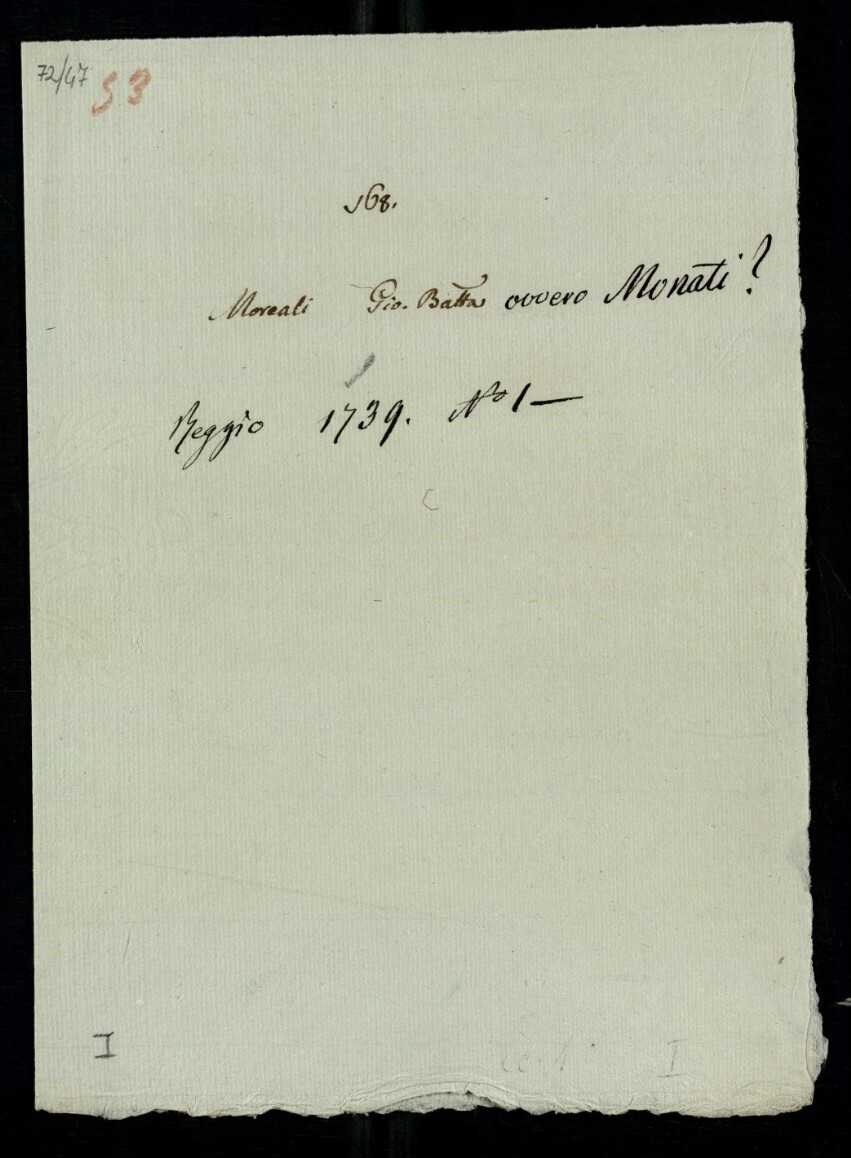 72/47 53
168.
Moreali Gio. Batta ovvero Monati?
Reggio 1739. No 1—
I I